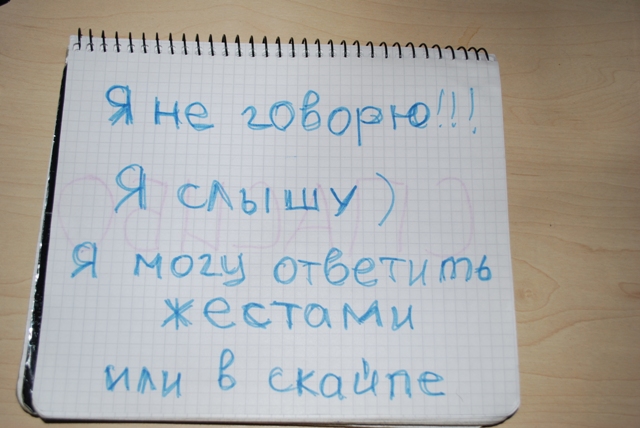 Я не говорю!!!
Я слышу)
Я могу ответить
жестами
или в скайпе